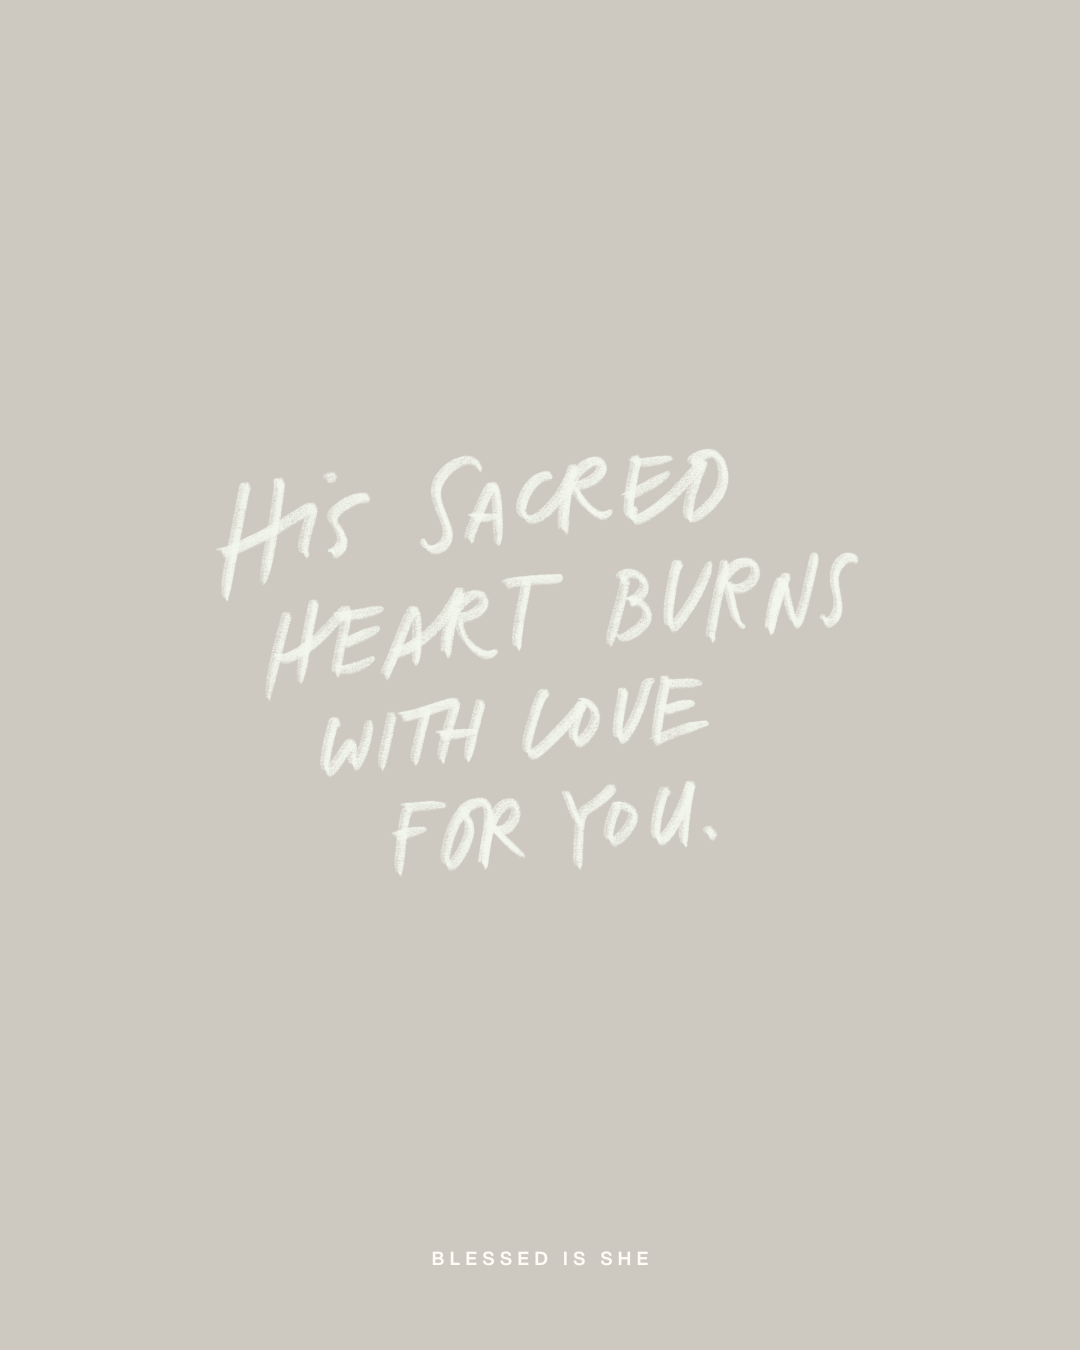 His SACRED
HEART BURNS
WITH LOVE
FOR YOU.
BLESSED IS SHE